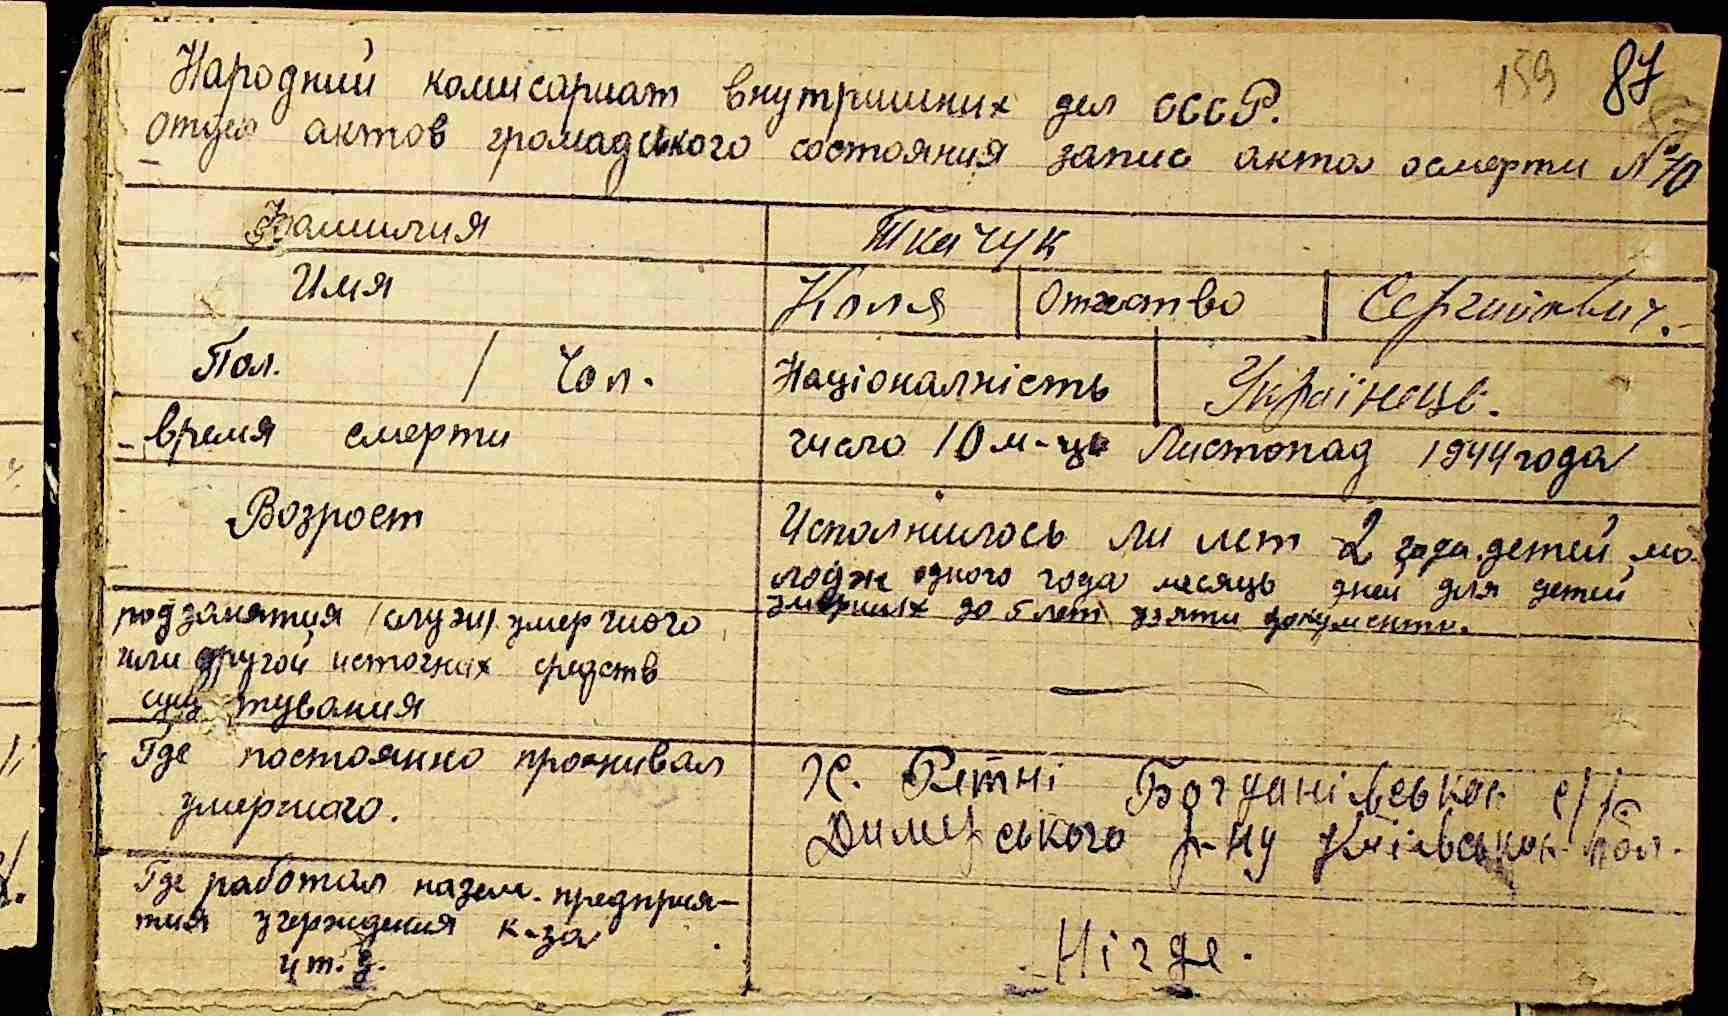 159 87
Народний комисариат внутришних дел СССР.
Отдел актов громадського состояния запис акта осмерти № 70
Фамилия Ткачук
Имя Коля Отчество Сергийович.
Пол. Чол. Націоналність Українець.
время смерти число 10 м-ць Листопад 1944 года
Возрост Исполнилось ли лет 2 года детей мо-
лодж одного года месяць дней для детей
умерших до 5 лет взяти документи.
под занятия (служ) умерчиого
или другой источних средств
существования
Где постоянно проживал Х. Ретні Богданівської с/р
умерчиого. Димерського р-ну Київської обл.
Где работал назем. предприя-
тия учерждения к-за Нігде.
и т. д.